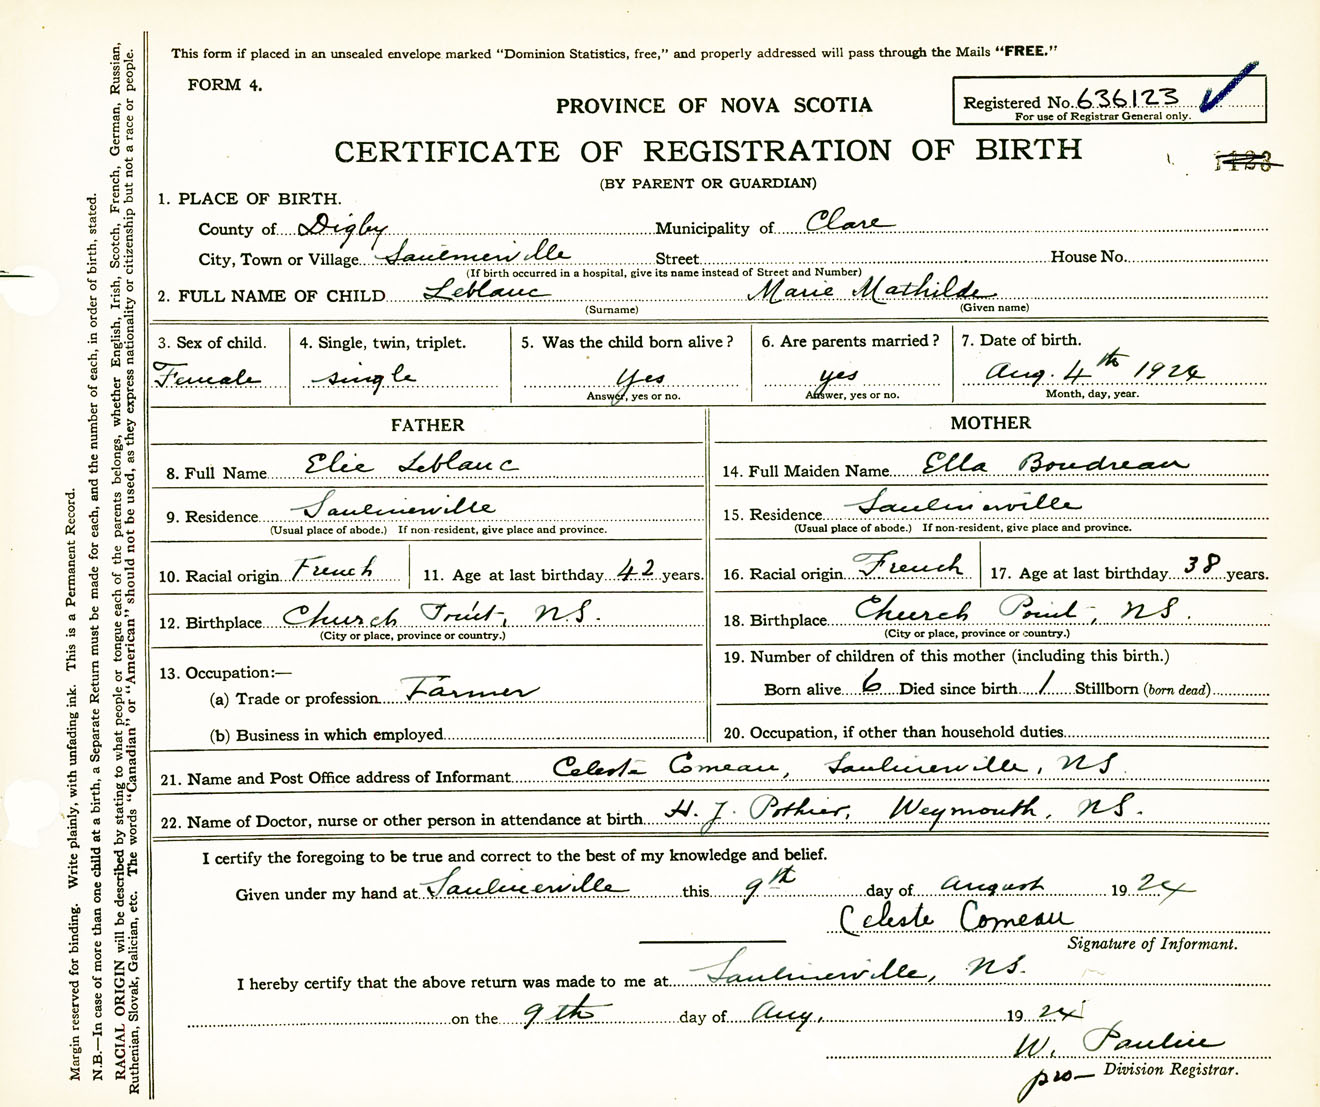 This form if placed in an unsealed envelope marked "Dominion Statistics, free," and properly addressed will pass through the Mails "FREE."
FORM 4.
PROVINCE OF NOVA SCOTIA
Registered No. 636123
For use of Registrar General only.
CERTIFICATE OF REGISTRATION OF BIRTH
(BY PARENT OR GUARDIAN)
1. PLACE OF BIRTH.
County of Digby Municipality of Clare
City, Town or Village Saulnierville Street House No.
(If birth occurred in a hospital, give its name instead of Street and Number)
2. FULL NAME OF CHILD Leblanc Marie Mathilde
(Surname) (Given name)
3. Sex of child. 4. Single, twin, triplet. 5. Was the child born alive? 6. Are parents married? 7. Date of birth.
Female single yes yes Aug. 4th 1924
Answer, yes or no. Answer, yes or no. Month, day, year.
FATHER MOTHER
8. Full Name Elie Leblanc
14. Full Maiden Name Ella Boudreau
9. Residence Saulnierville
(Usual place of abode.) If non-resident, give place and province.
15. Residence Saulnierville
(Usual place of abode.) If non-resident, give place and province.
10. Racial origin French 11. Age at last birthday 42 years.
16. Racial origin French 17. Age at last birthday 38 years.
12. Birthplace Church Point, N.S.
(City or place, province or country.)
18. Birthplace Church Point, NS.
(City or place, province or country.)
13. Occupation:—
(a) Trade or profession Farmer
(b) Business in which employed
19. Number of children of this mother (including this birth.)
Born alive 6 Died since birth 1 Stillborn (born dead)
20. Occupation, if other than household duties
21. Name and Post Office address of Informant Celeste Comeau, Saulnierville, NS.
22. Name of Doctor, nurse or other person in attendance at birth H. J. Pothier, Weymouth, NS.
I certify the foregoing to be true and correct to the best of my knowledge and belief.
Given under my hand at Saulnierville this 9th day of August 1924
Celeste Comeau
Signature of Informant.
I hereby certify that the above return was made to me at Saulnierville, NS.
on the 9th day of Aug. 1924
W.
pro- Division Registrar.
Margin reserved for binding. Write plainly, with unfading ink. This is a Permanent Record.
N.B.—In case of more than one child at a birth, a Separate Return must be made for each, and the number of each, in order of birth, stated.
RACIAL ORIGIN will be described by stating to what people or tongue each of the parents belongs, whether English, Irish, Scotch, French, German, Russian,
Ruthenian, Slovak, Galician, etc. The words "Canadian" or "American" should not be used, as they express nationality or citizenship but not a race or people.